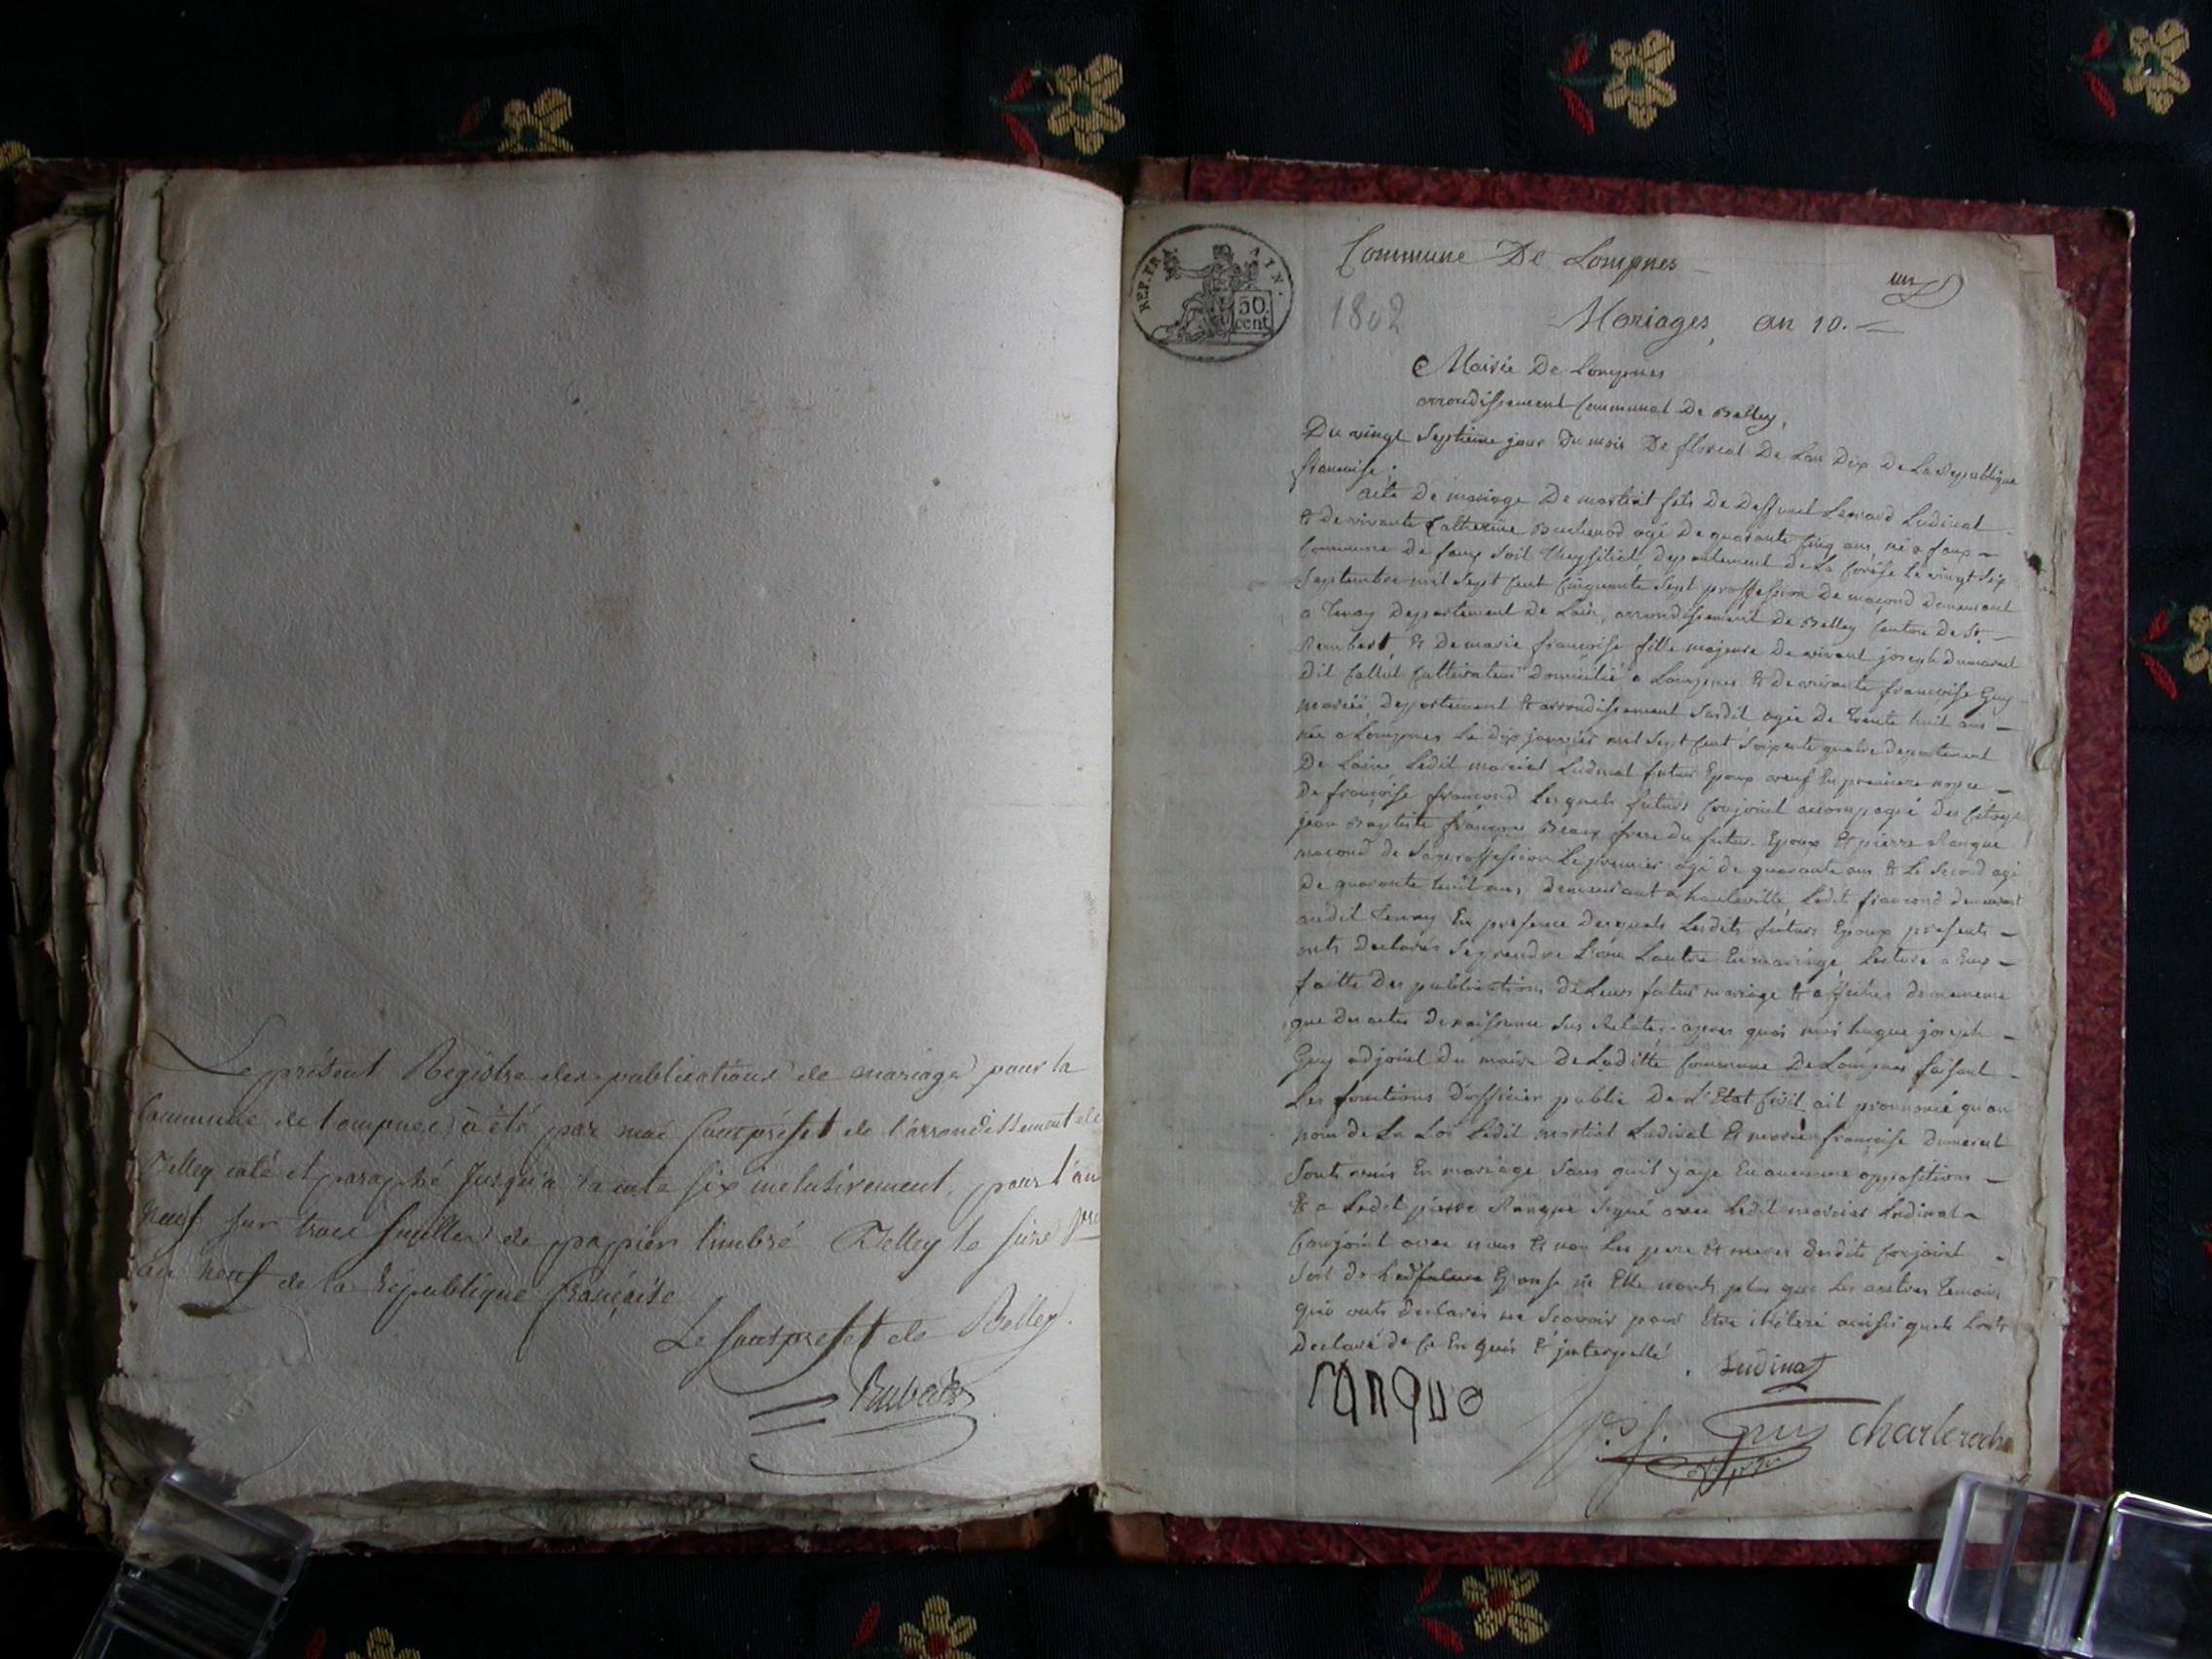 Le présent Registre des publications de mariage pour la
Commune de Lompnes, a été par moi Souspréfet de l'arrondissement de
Belley coté et paraphé Jusqu'a la cote six inclusivement, pour l'an
neuf sur trois feuilles de papier timbré Belley le
an neuf de la République française
Le sousprefet de Belley.
REP. FRA. AIN.
50.
cent
Commune De Lompnes
un
1802
Mariages, an 10.
Mairie De Lompnes
arrondissement Communal De Belley,
Du vingt Septieme jour du mois De floreal De Lan Dix de La Republique
francoise.
acte De mariage De martial fils de Deffunct Leonard Ludinat
& de vivante Catherine agé De quarante Cinq ans, né a faux
Commune de faux Soit departement de La Corèse Le vingt Six
Septembre mil Sept Cent Cinquante Sept proffession De maçond demeurant
a Tenay Departement de Lain, arrondissement De Belley Canton De St.
Rembert, & De marie francoise fille majeure De vivant joseph Dumarest
dit Callet Cultivateur Domicilié a Lompnes & de vivante francoise Guy
mariéé, Departement & arrondissement Susdit agée De Trente huit ans
née a Lompnes Le Dix janvier mil Sept Cent Soixante quatre departement
De Lain Ledit marcial Ludinat futur Epoux veuf En premiere nopce
De francoise francond Les quels futurs Conjoint accompagné des Citoyen
jean Baptiste francon Beaux frere du futur Epoux & pierre Rangue
macond de Sa proffession Le premier agé de quarante ans & Le Second agé
De quarante huit ans, Demeurant a hauteville Ledit francond demeurant
audit Tenay En presence Desquels Lesdits futurs Epoux presents
onts Declarés Se prendre L'un Lautre En mariage Lecture a Eux
faitte Des publications de Leurs futur mariage & affiches de mememe
que Des actes De naissance Sus Relatés apres quoi moi hugue joseph
Guy adjoint du maire De Laditte Commune De Lompnes faisant
Les fonctions d'officier public De L'Etat Civil ait prononcé qu'au
nom de La Loi Ledit martial Ludinat & marie francoise dumarest
Sont unis En mariage Sans quil y aye Eu aucunne oppositions
& a Ledit pierre Rangue Signé avec Ledit marcial Ludinat
Conjoint avec nous & non Les pere & meres desdits Conjoint
Soit de Ladfuture Epouse ni Elle nonts plus que Les autres Temoins
qui onts declarés ne Scavoir pour Etre illiteré ainsi quils Lonts
Declaré de Ce Enquis & jnterpellé.
Ludinat
ranque
h. j. Guy charlerode